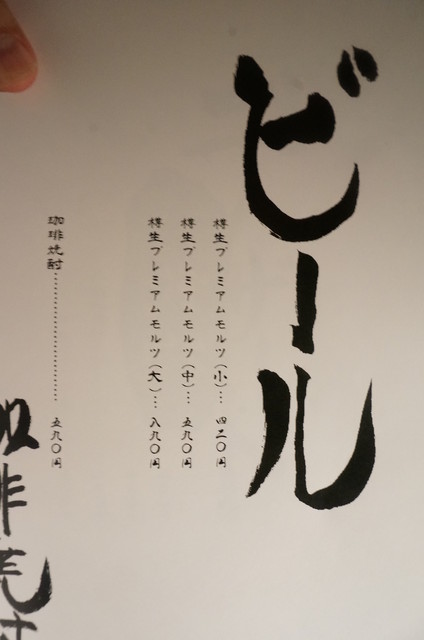 ビール
樽生プレミアムモルツ（小）… 四二〇円
樽生プレミアムモルツ（中）… 五九〇円
樽生プレミアムモルツ（大）… 八九〇円
珈琲焼酎………………… 五九〇円